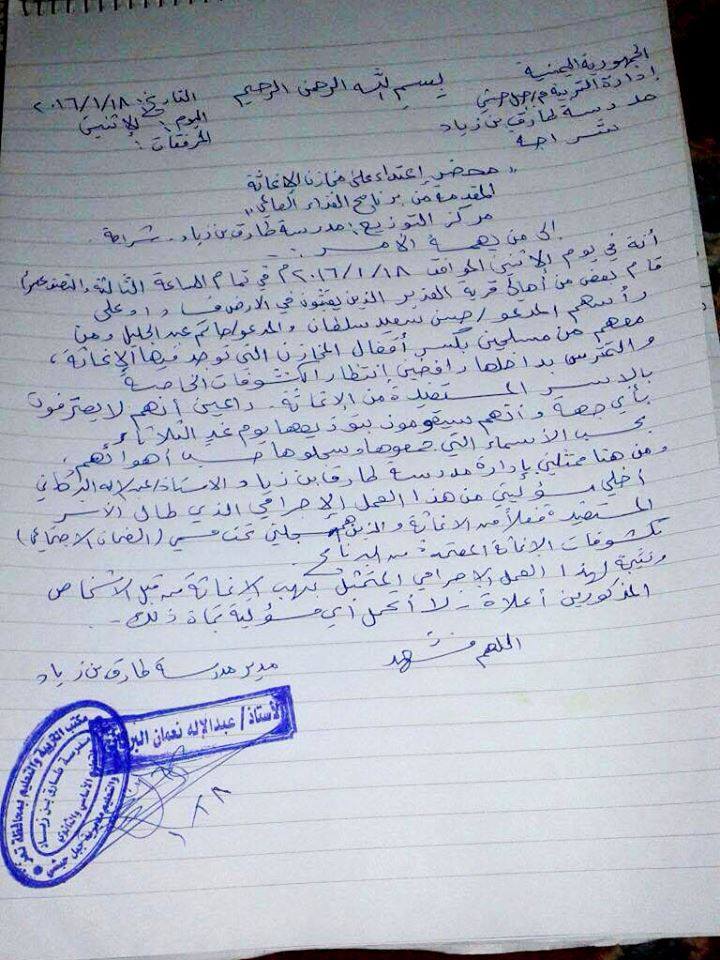 الجمهورية اليمنية
إدارة التربية م/جبل حبشي
مدرسة طارق بن زياد
شراجة
بسم الله الرحمن الرحيم
التاريخ: ٢٠١٦/١/١٨
اليوم: الإثنين
المرفقات:
" محضر إعتداء على مخازن الإغاثة
المقدمة من برنامج الغذاء العالمي "
مركز التوزيع: مدرسة طارق بن زياد - شراجة -
الى من يهمه الأمر
أنة في يوم الإثنين الموافق ٢٠١٦/١/١٨م في تمام الساعة الثالثة والنصف عصراً
قام بعض من أهالي قرية الغدير الذين يعثون في الارض فسادا وعلى
رأسهم المدعو/حسن سعيد سلطان والمدعو/حاتم عبدالجليل ومن
معهم من مسلحين بكسر أقفال المخازن التي توجد فيها الإغاثة،
والتمترس بداخلها رافضين إنتظار الكشوفات الخاصة
بالأسر المستفيدة من الإغاثة. داعين أنهم لا يعترفون
بأي جهة وأنهم سيقومون بتوزيعها يوم غدٍ الثلاثاء
بحسب الأسماء التي جمعوها وسجلوها حسب أهوائهم،
ومن هنا ممثلي بإدارة مدرسة طارق بن زياد والاستاذ/عبدالإله البركاني
أخلي مسؤليتي من هذا العمل الإجرامي الذي طال الأسر
المستفيدة فعلاً من الإغاثة والذين تم تسجيلي تحت مسمى (الضمان الاجتماعي)
بكشوفات الإغاثة المعتمدة من البرنامج.
ونتيجة لهذا العمل الإجرامي المتمثل بنهب الإغاثة من قبل الاشخاص
المذكورين أعلاة - لا أتحمل أي مسؤلية تجاة ذلك -
اللهم فشهد
مدير مدرسة طارق بن زياد
الأستاذ/ عبدالإله نعمان البر
مكتب التربية والتعليم بمحافظة تعز
مدرسة طارق بن زياد